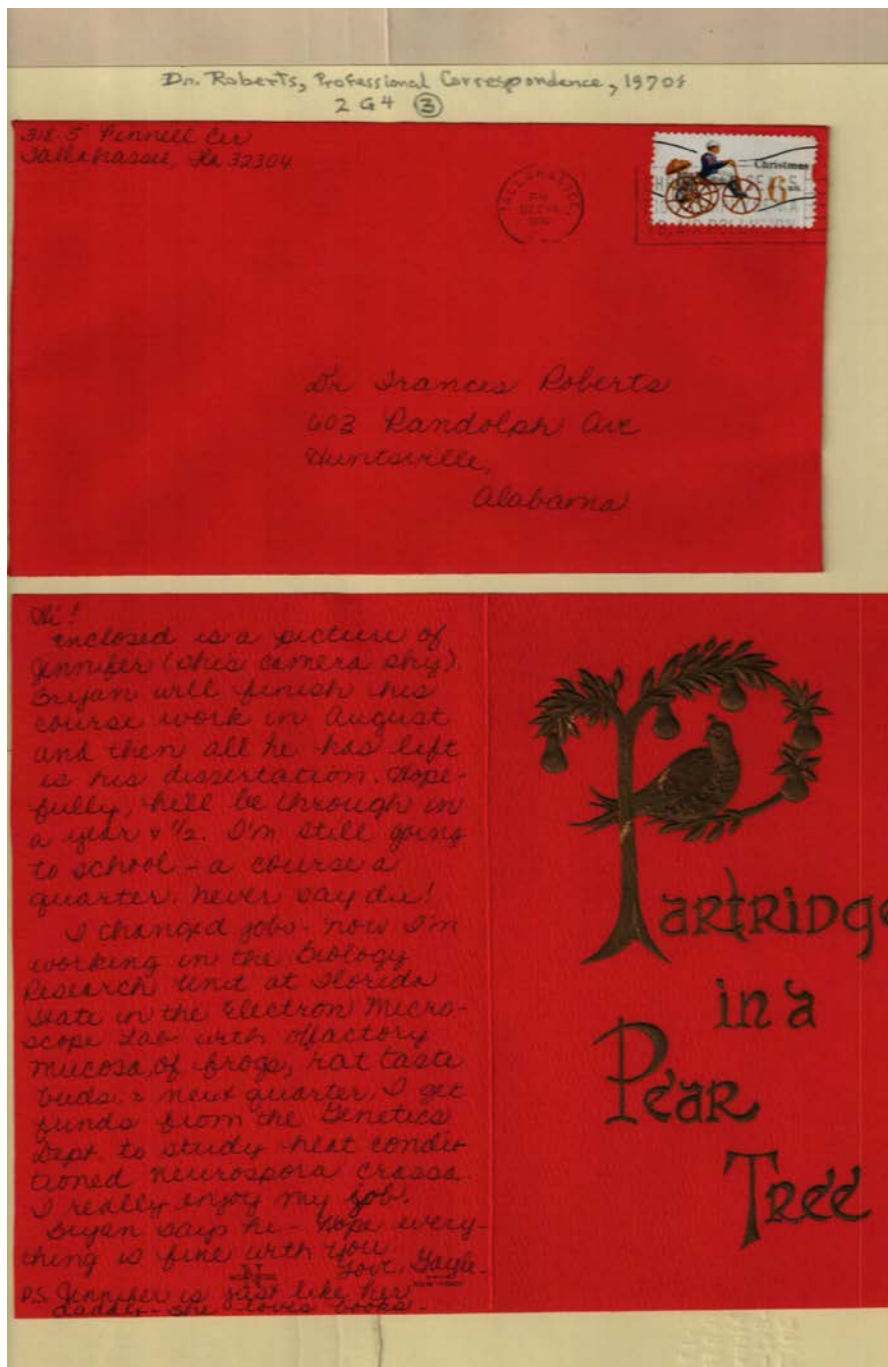 Dr. Roberts, Professional Correspondence, 1970s
2 G4 ③
318-5 Pennell Cir
Tallahassee, Fla 32304
TALLAHASSEE,
PM
DEC 14
Christmas
6
U.S.
Dr Frances Roberts
603 Randolph Ave
Huntsville,
Alabama
Hi!
Enclosed is a picture of
Jennifer (she's camera shy).
Bryan will finish his
course work in August
and then all he has left
is his dissertation. Hope-
fully, he'll be through in
a year & 1/2. I'm still going
to school - a course a
quarter. Never say die!
I changed jobs - now I'm
working in the Biology
Research Unit at Florida
State in the Electron Micro-
scope Lab with olfactory
mucosa, of frogs, rat taste
buds, & next quarter, I get
funds from the Genetics
Dept. to study heat condi-
tioned neurospora crassa.
I really enjoy my job.
Bryan says hi - Hope every-
thing is fine with you.
Love, Gayle
P.S. Jennifer is just like her
daddy - she loves books.
N
Partridge
in a
Pear
Tree